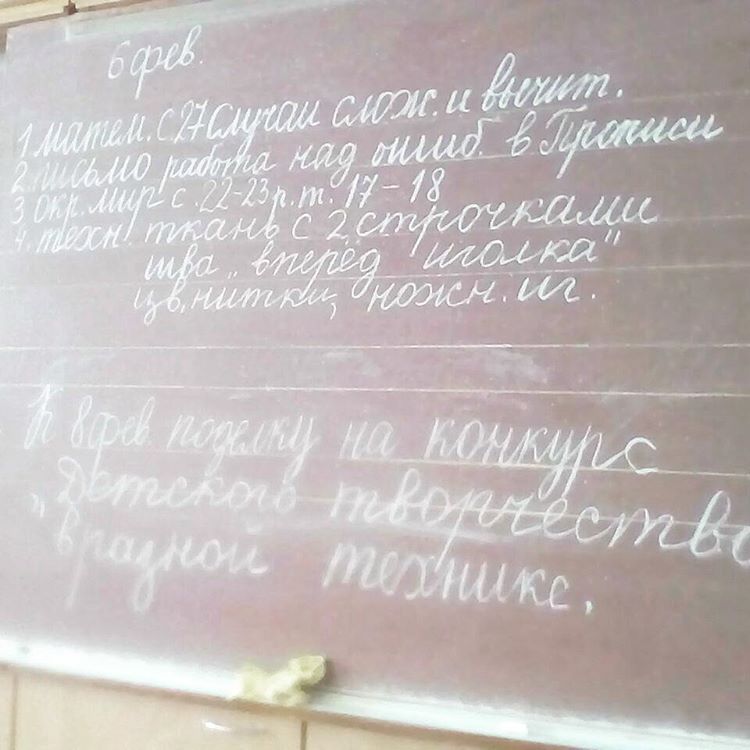 6 фев.
1 матем. с 27 Случаи слож. и вычит.
2. письмо работа над ошиб. в Прописи
3 окр. мир с. 22-23 р.т. 17-18
4. техн. ткань с 2 строчками
шва „вперёд иголка"
цв. нитки, ножн. иг.
К 8 фев. поделку на конкурс
„Детского творчества
в разной технике.